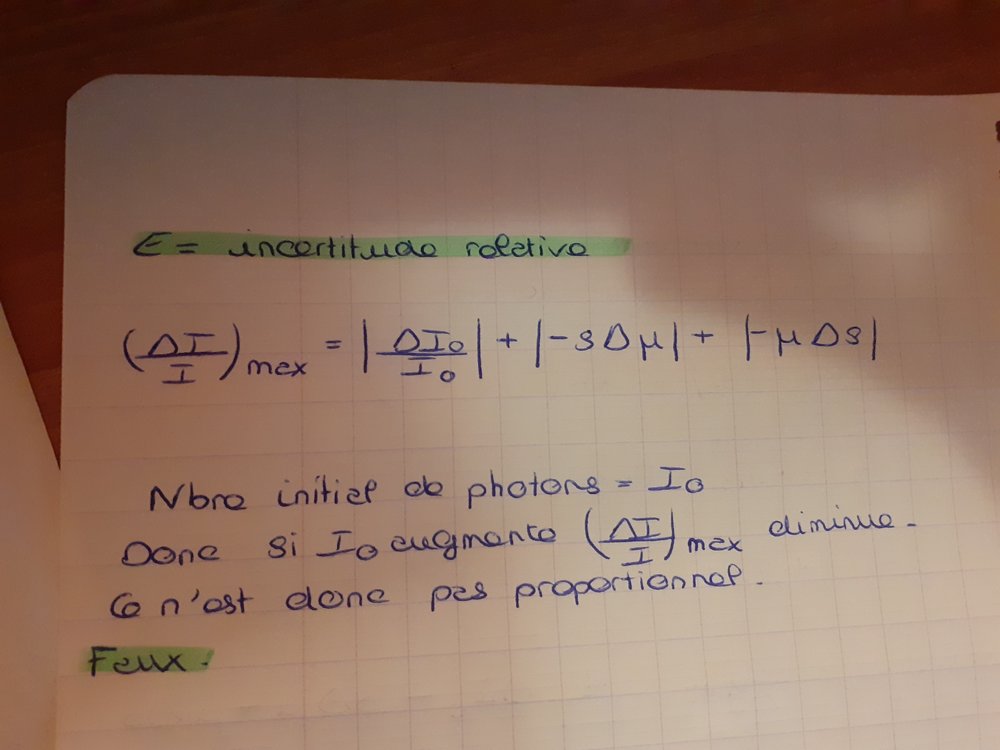 E = incertitude relative
(ΔI/I)max = |ΔI0/I0| + |-sΔμ| + |-μΔs|
Nbre initial de photons = I0
Donc si I0 augmente (ΔI/I)max diminue.
Ce n'est donc pas proportionnel.
Faux.